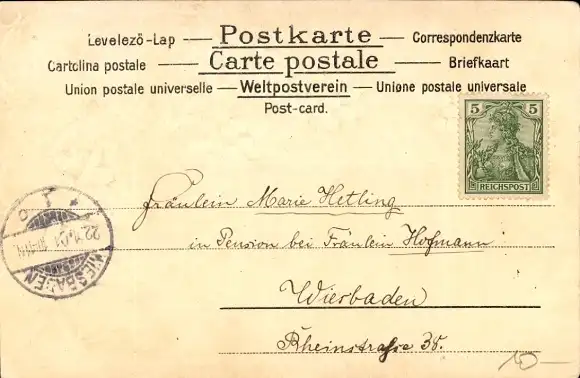 Levelező-Lap — Postkarte — Correspondenzkarte
Cartolina postale — Carte postale — Briefkaart
Union postale universelle — Weltpostverein — Unione postale universale
Post-card.
5 5
REICHSPOST
Fräulein Marie Hetling
in Pension bei Fräulein Hofmann
Wiesbaden
Rheinstrasse 38.
WIESBADEN
10—